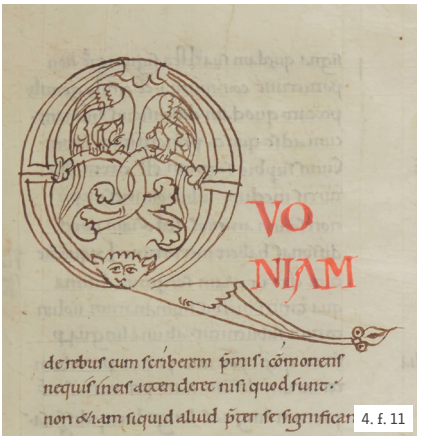 QVO
NIAM
de rebus cum scriberem p̄misi cōmonens
nequis ineis attenderet nisi quod sunt·
non &iam siquid aliud p̄ter se significan
4. f. 11